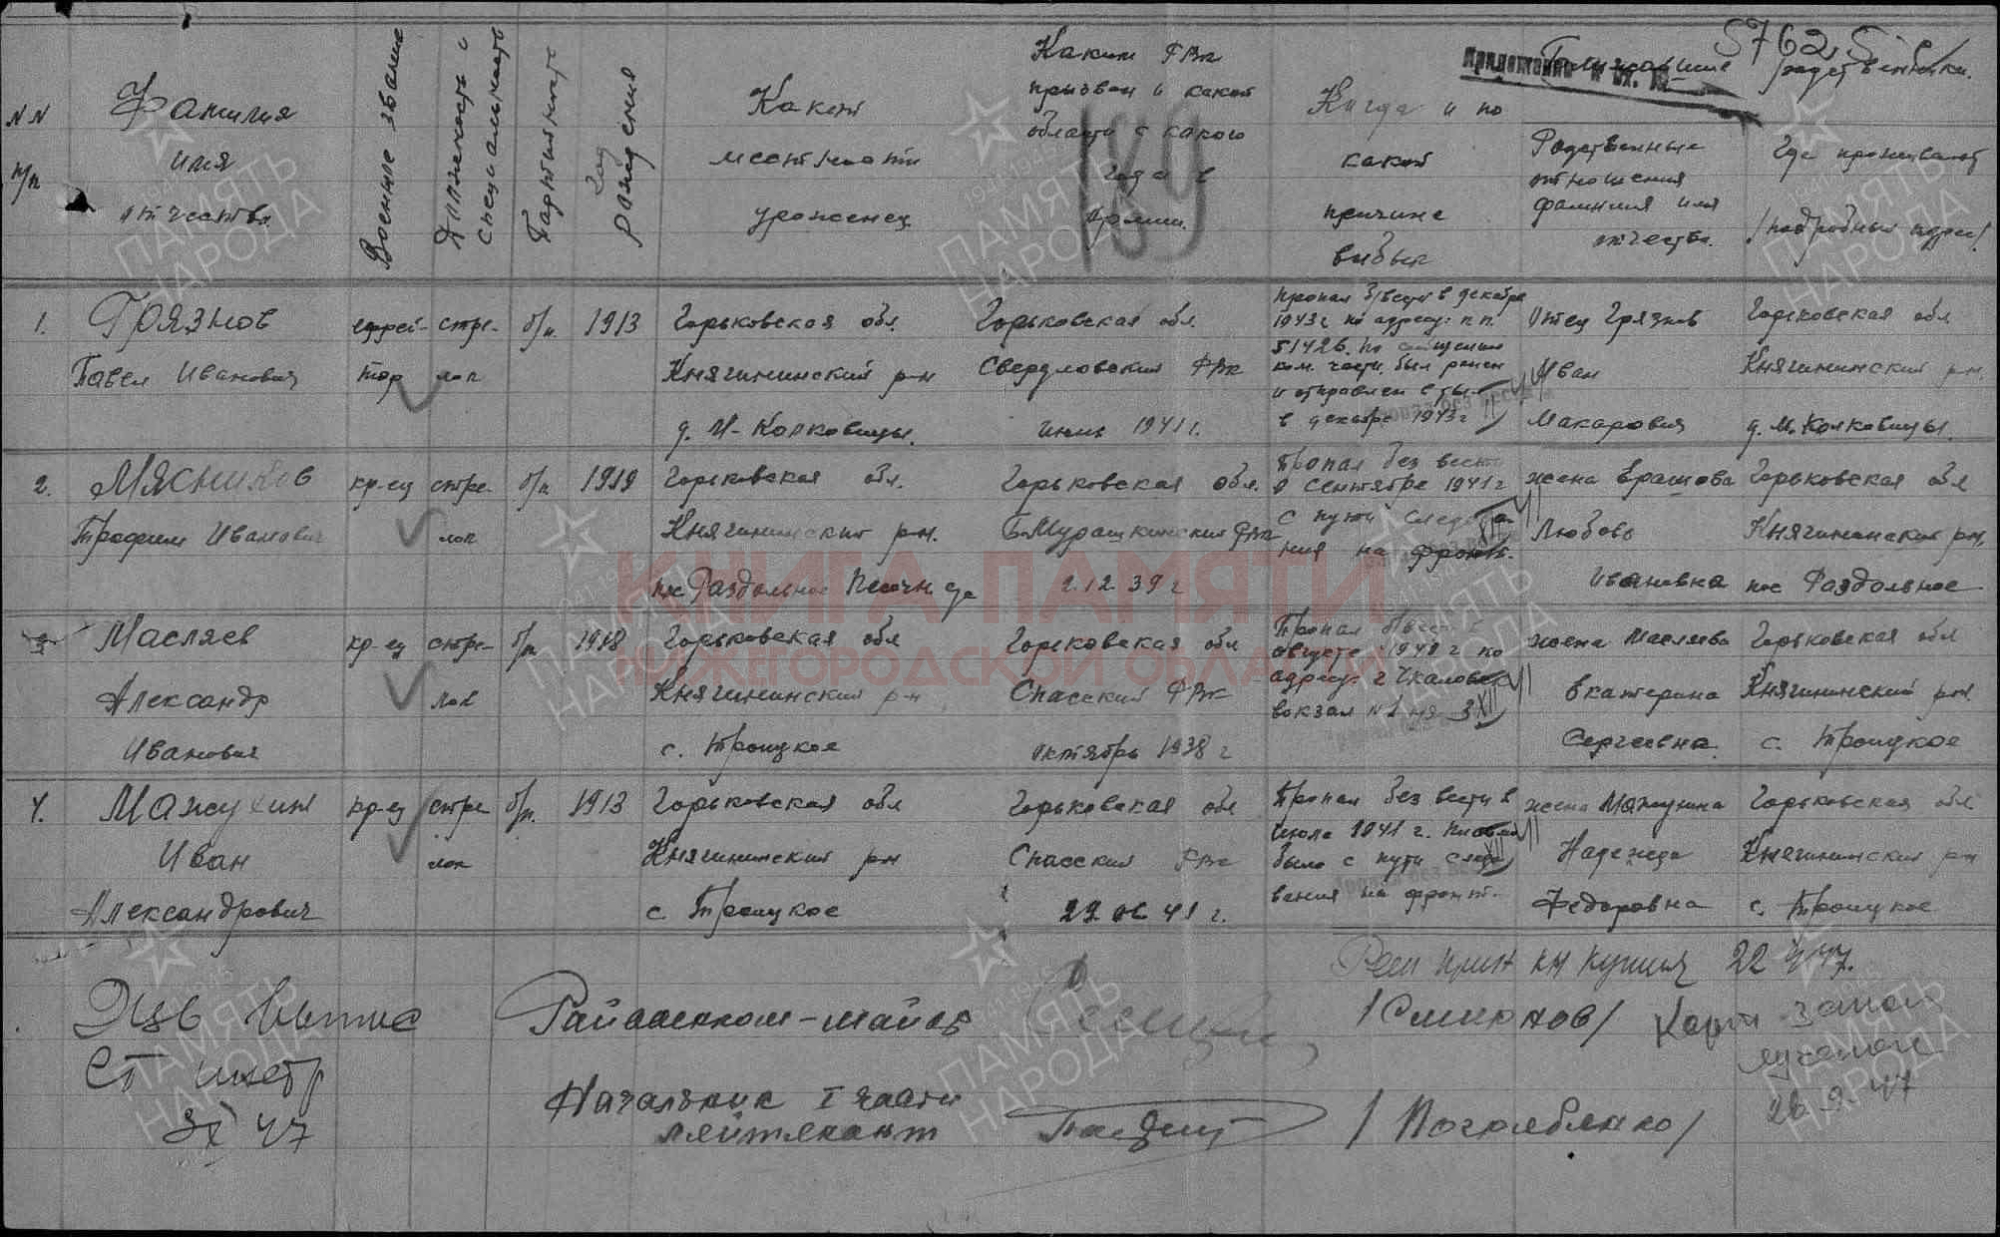 57625
Приложение к вх. №
NN п/п
Фамилия имя отчество
Военное звание
Должность и специальность
Партийность
Год рождения
Какой местности уроженец
Каким РВК призван и какой области с какого года в армии.
189
Когда и по какой причине выбыл
Ближайшие родственники.
Родственные отношения фамилия имя отчество.
Где проживают /подробный адрес/
1. Грязнов ефрей- стре- б/п. 1913 Горьковская обл. Горьковская обл. Пропал б/вести в декабре Отец Грязнов Горьковская обл
1943г по адресу: п.п.
51426. По сообщению
Павел Иванович тор лок Княгининский р-н Свердловский РВК ком. части был ранен Иван Княгининский р-н.
и отправлен в тыл
д. М-Колковицы. июнь 1941г. в декабре 1943г Макарович д. М. Колковицы.
2. Мясников кр-ец стре- б/п 1919 Горьковская обл. Горьковская обл. Пропал без вести жена Ерашова Горьковская обл
в сентябре 1941г
Трофим Иванович лок Княгининский р-н. Б-Мурашкинский РВК с пути следова Любовь Княгининский р-н,
ния на фронт.
пос Раздольное 2.12 39 г Ивановна пос Раздольное
3. Масляев кр-ец стре- б/п. 1918 Горьковская обл Горьковская обл Пропал б/вести в жена Масляева Горьковская обл
августе 1942 г по
Александр лок Княгининский р-н Спасский РВК адресу: г Чкалов Екатерина Княгининский р-н.
вокзал №1
Иванович с. Троицкое октябрь 1938 г Сергеевна. с. Троицкое
4. Мажухин кр-ец стре б/п. 1913 Горьковская обл Горьковская обл Пропал без вести в жена Мажухина Горьковская обл.
июле 1941 г. письмо
Иван лок Княгининский р-н Спасский РВК было с пути следо Надежда Княгининский р-н
вания на фронт.
Александрович с Троицкое 22 06 41 г. Федоровна с. Троицкое
22 47.
Райвоенком-майор /Смирнов/
Ст инстр
Начальник I части
лейтенант /Погребенко/
XI 47
26.9.47
КНИГА ПАМЯТИ
НИЖЕГОРОДСКОЙ ОБЛАСТИ
ПАМЯТЬ НАРОДА
1941-1945